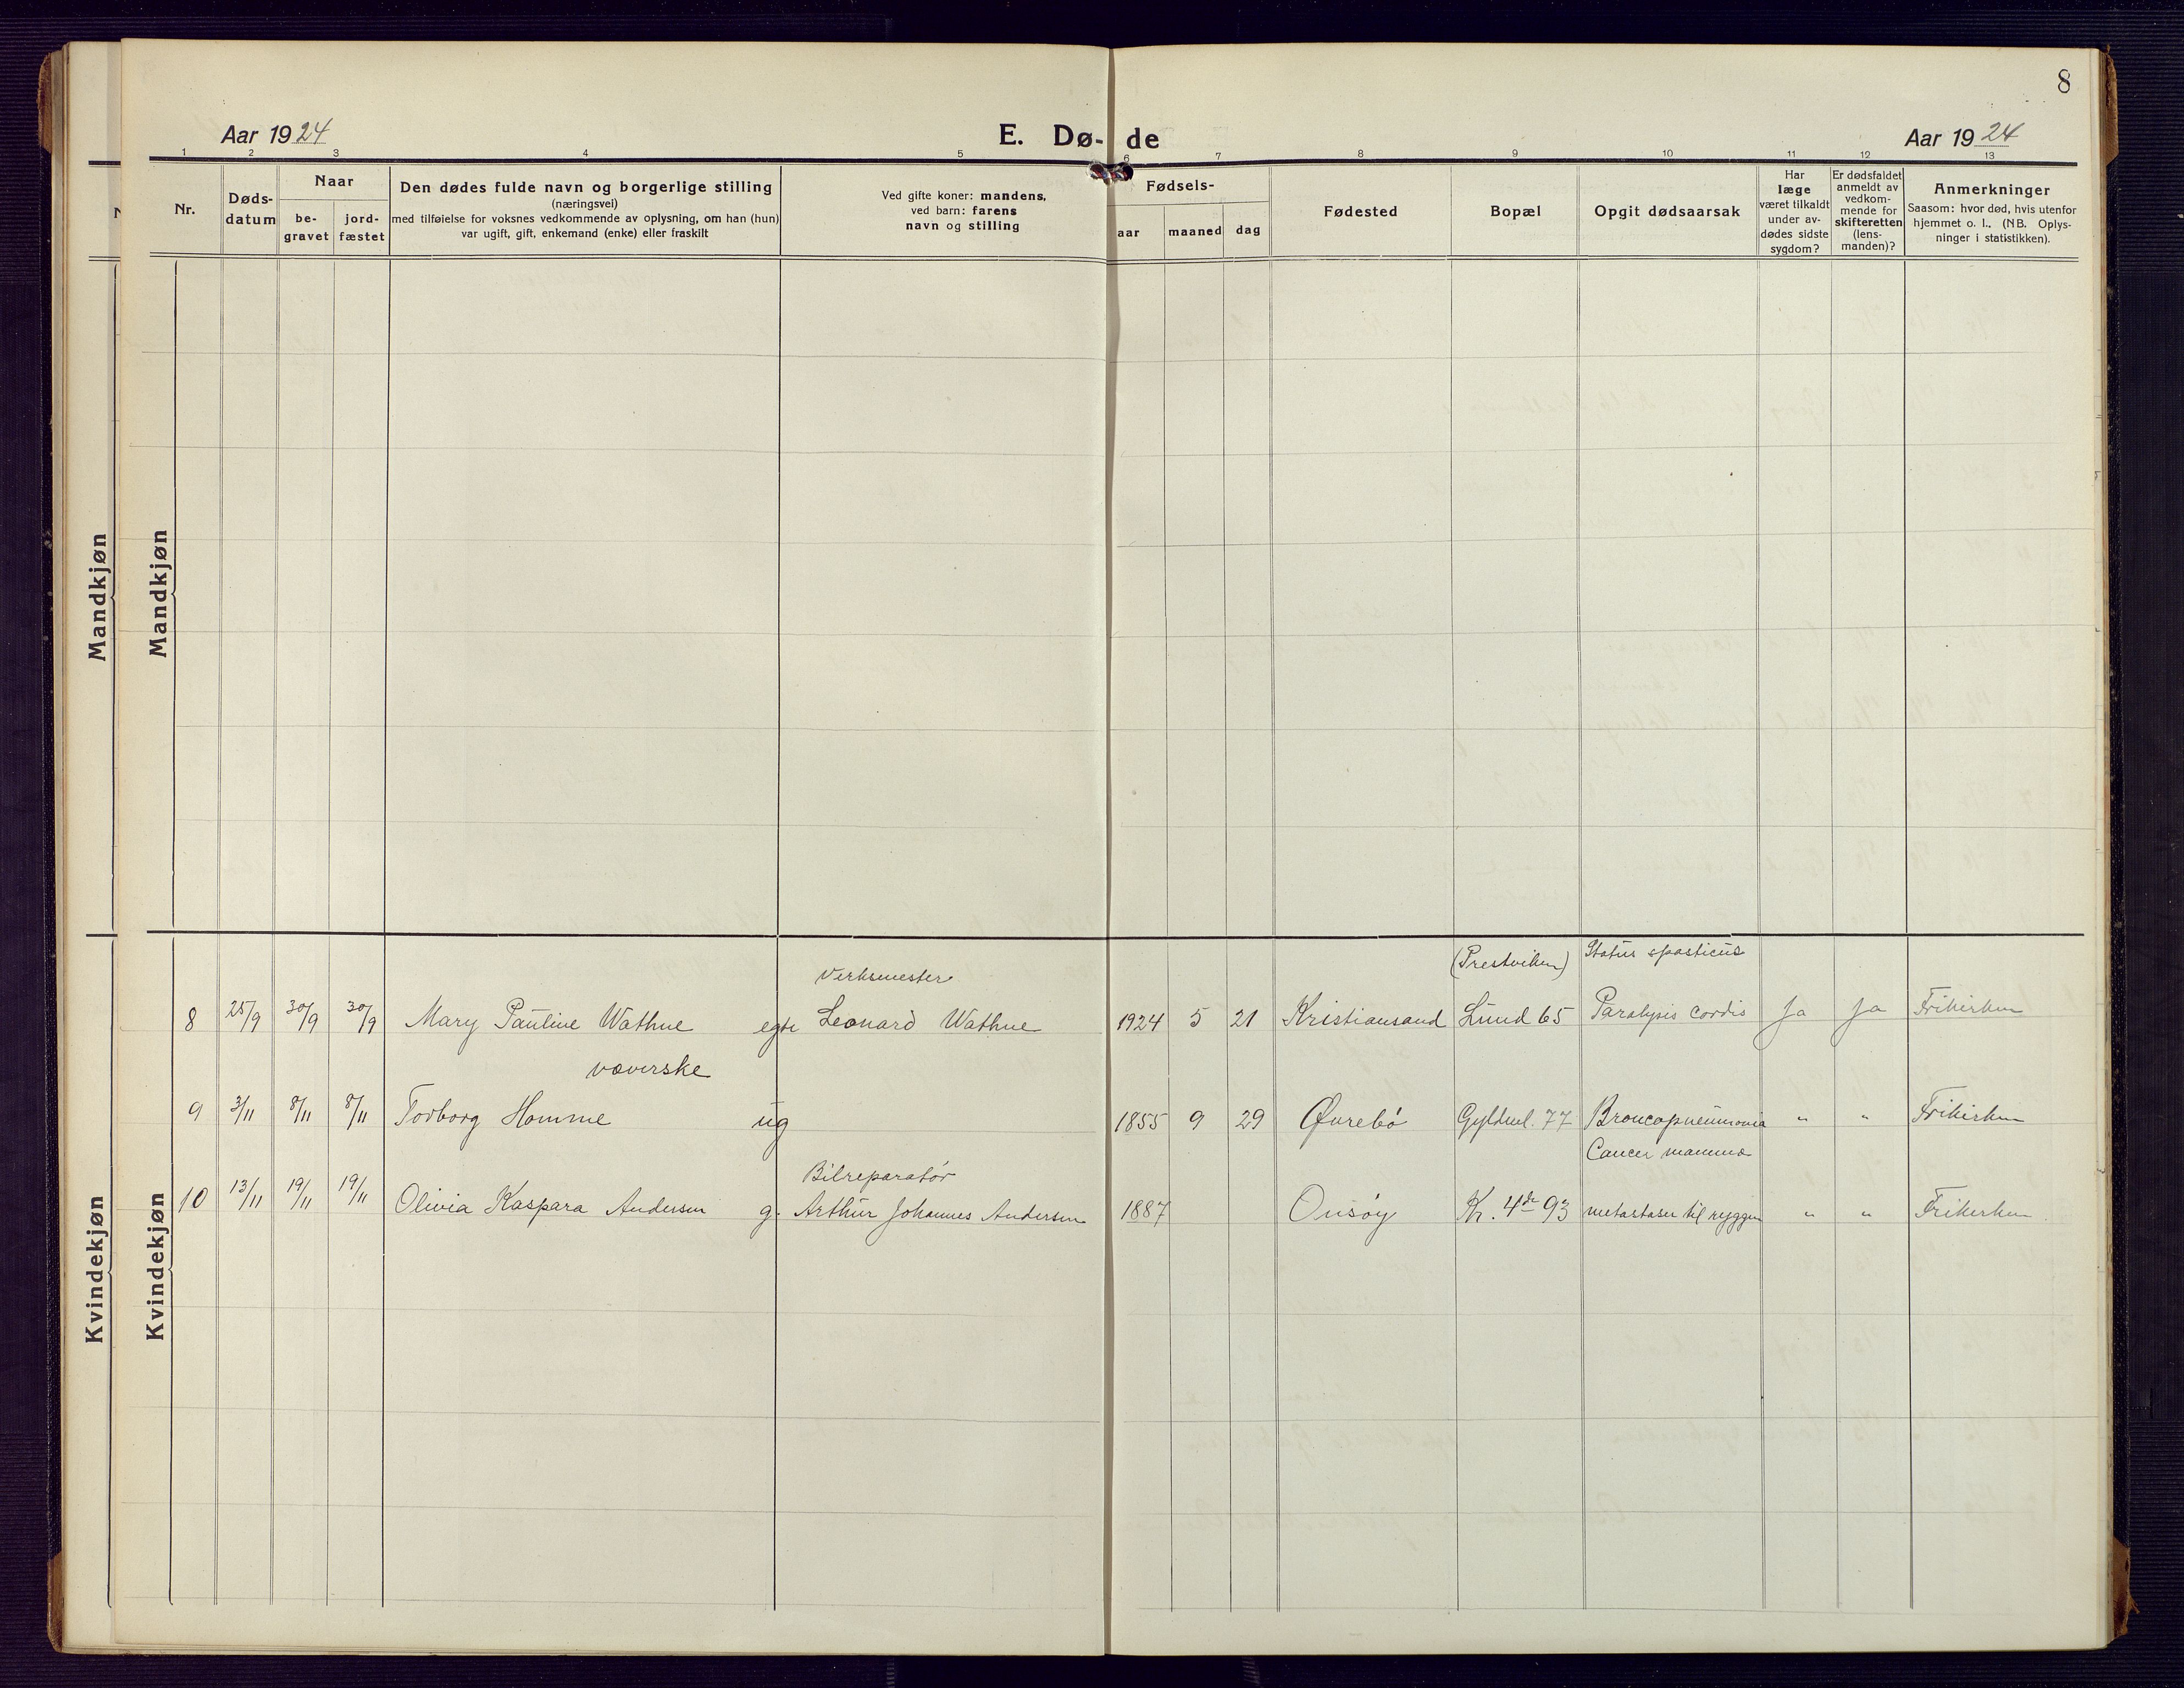 8
Aar 1924
E. Dø-de
Aar 1924
1 2 3 4 5 6 7 8 9 10 11 12 13
Nr.
Døds-
datum
Naar
be-
gravet
jord-
fæstet
Den dødes fulde navn og borgerlige stilling
(næringsvei)
med tilføielse for voksnes vedkommende av oplysning, om han (hun)
var ugift, gift, enkemand (enke) eller fraskilt
Ved gifte koner: mandens,
ved barn: farens
navn og stilling
Fødsels-
aar maaned dag
Fødested
Bopæl
Opgit dødsaarsak
Har
læge
været tilkaldt
under av-
dødes sidste
sygdom?
Er dødsfaldet
anmeldt av
vedkom-
mende for
skifteretten
(lens-
manden)?
Anmerkninger
Saasom: hvor død, hvis utenfor
hjemmet o. l., (NB. Oplys-
ninger i statistikken).
Mandkjøn
Mandkjøn
Kvindekjøn
Kvindekjøn
Verksmester (Prestviken) Status spasticus
8 25/9 30/9 30/9 Mary Pauline Wathne egte Leonard Wathne 1924 5 21 Kristiansand Lund 65 Paralysis cordis Ja Ja Frikirken
væverske
9 3/11 8/11 8/11 Torborg Homme ug 1855 9 29 Øvrebø Gyldenl. 77 Broncopneumonia " " Frikirken
Bilreparatør Cancer mammæ
10 13/11 19/11 19/11 Olivia Kaspara Andersen g. Arthur Johannes Andersen 1887 Onsøy Kr. 4de 93 metastaser til ryggen " " Frikirken